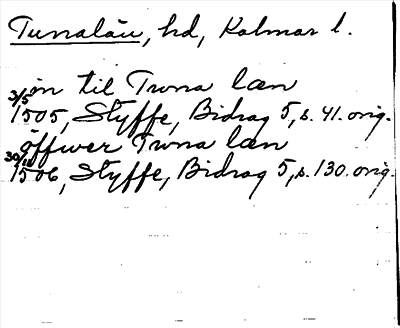 Tunalän, hd, Kalmar l.
in til Twna læn
3/5 1505, Styffe, Bidrag 5, s. 41. orig.
öffwer Twna læn
30/11 1506, Styffe, Bidrag 5, s. 130. orig.